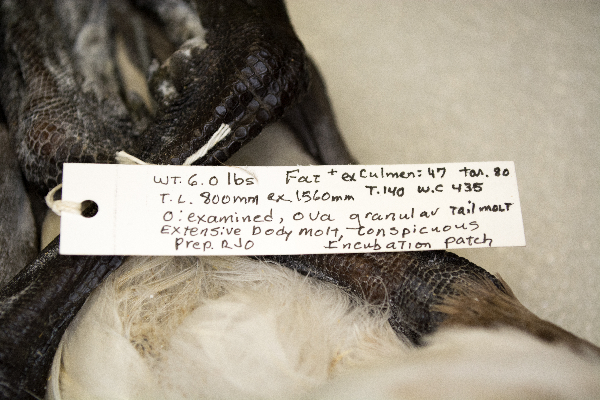 WT. 6.0 lbs Fat + ex Culmen: 47 tar. 80
T.L. 800mm ex. 1560mm T. 140 W.C 435
O: examined, ova granular Tail molt
Extensive body molt, conspicuous
Prep. RJO Incubation patch